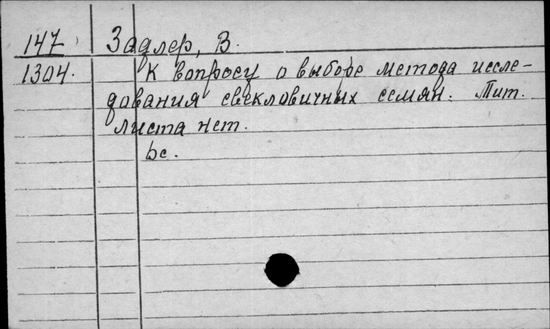 147 Задлер, В.
1304. К вопросу о выборе метода иссле-
дования свекловичных семян. Тит.
листа нет.
bc.